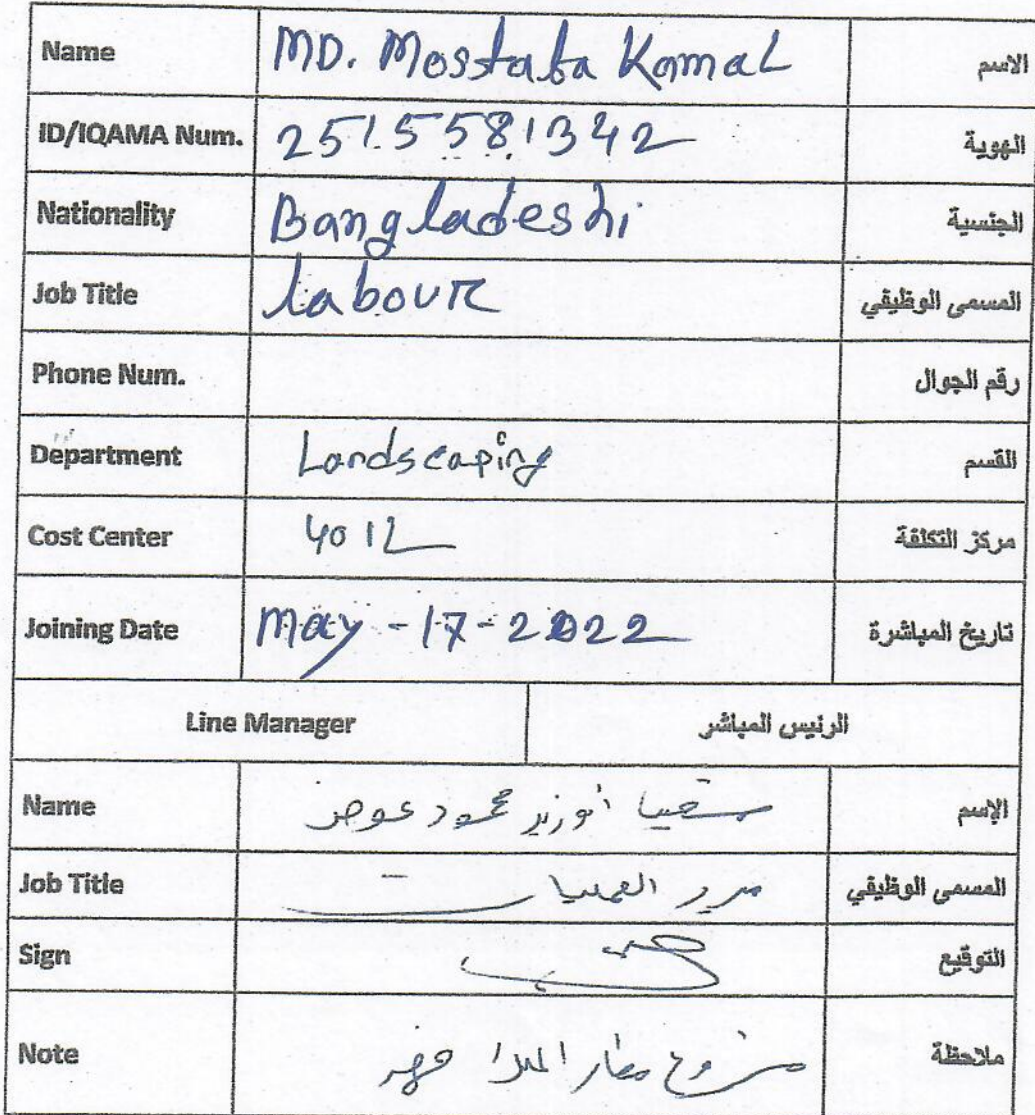 Name MD. Mostafa Kamal الاسم
ID/IQAMA Num. 2515581342 الهوية
Nationality Bangladeshi الجنسية
Job Title labour المسمى الوظيفي
Phone Num. رقم الجوال
Department Landscaping القسم
Cost Center 4012 مركز التكلفة
Joining Date May-17-2022 تاريخ المباشرة
Line Manager الرئيس المباشر
Name محمود عوض الإسم
Job Title مدير العمليات المسمى الوظيفي
Sign التوقيع
Note مطار الملك فهد ملاحظة